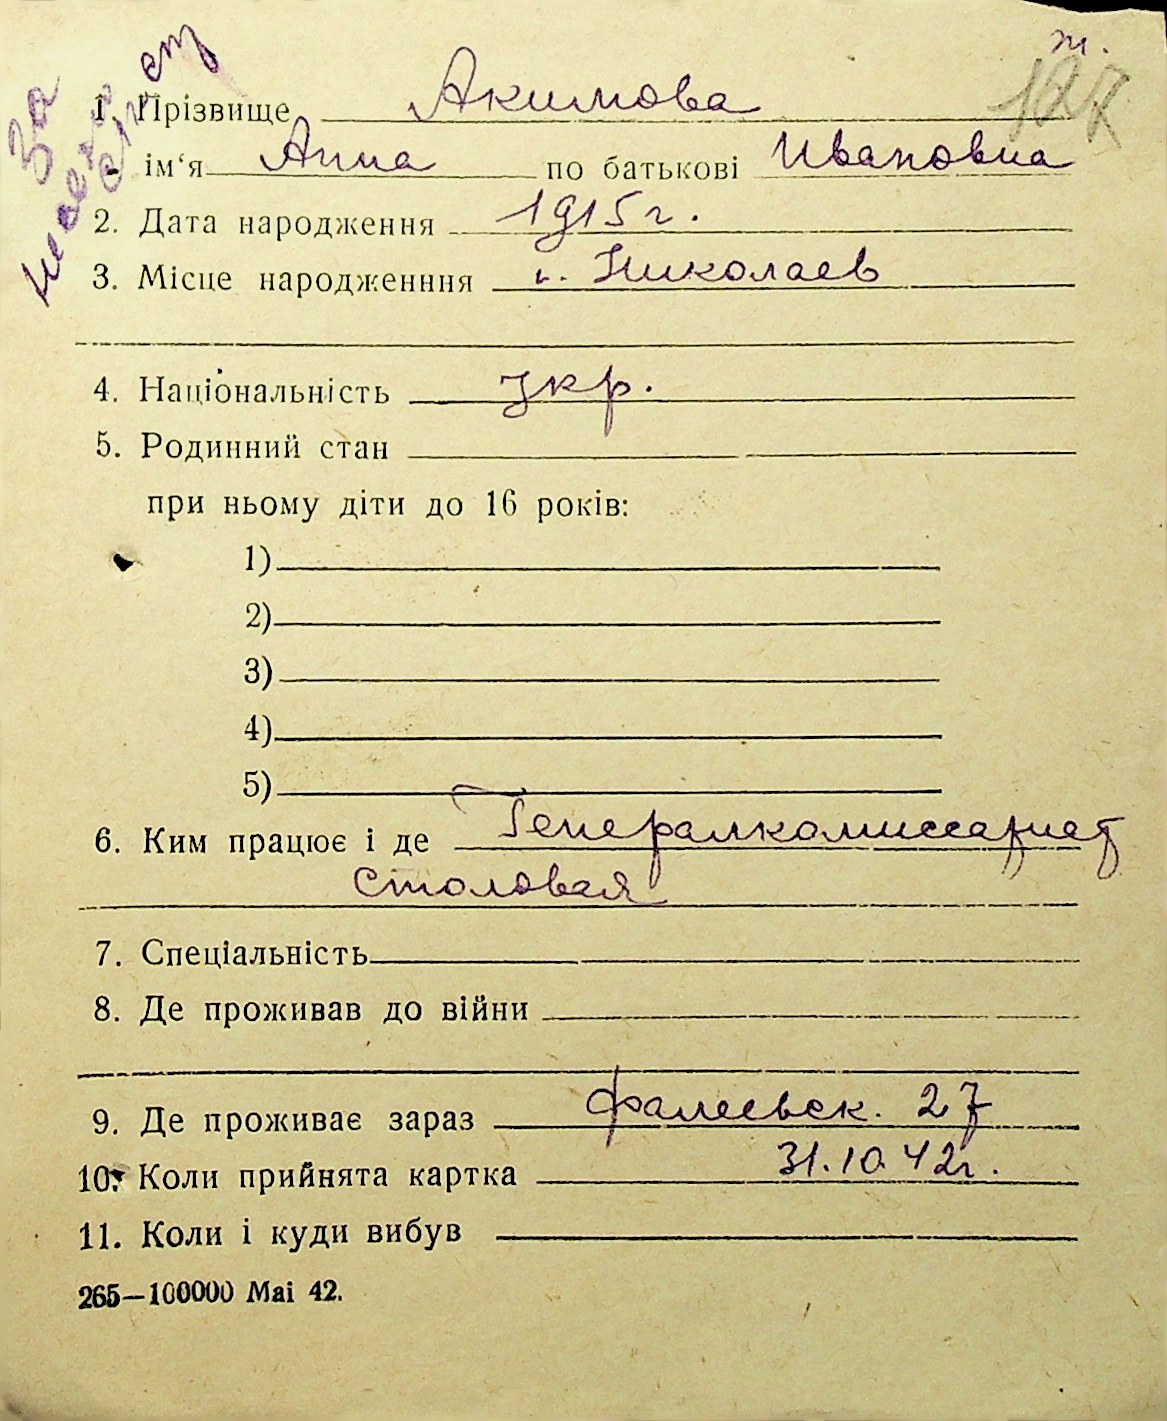 т.
127
За
1. Прізвище Акимова
ім‘я Анна по батькові Ивановна
2. Дата народження 1915 г.
3. Місце народженння г. Николаев
4. Національність укр.
5. Родинний стан
при ньому діти до 16 років:
1)
2)
3)
4)
5)
6. Ким працює і де Генералкомиссариат
столовая
7. Спеціальність
8. Де проживав до війни
9. Де проживає зараз Фалеевск. 27
10. Коли прийнята картка 31.10.42г.
11. Коли і куди вибув
265—100000 Mai 42.